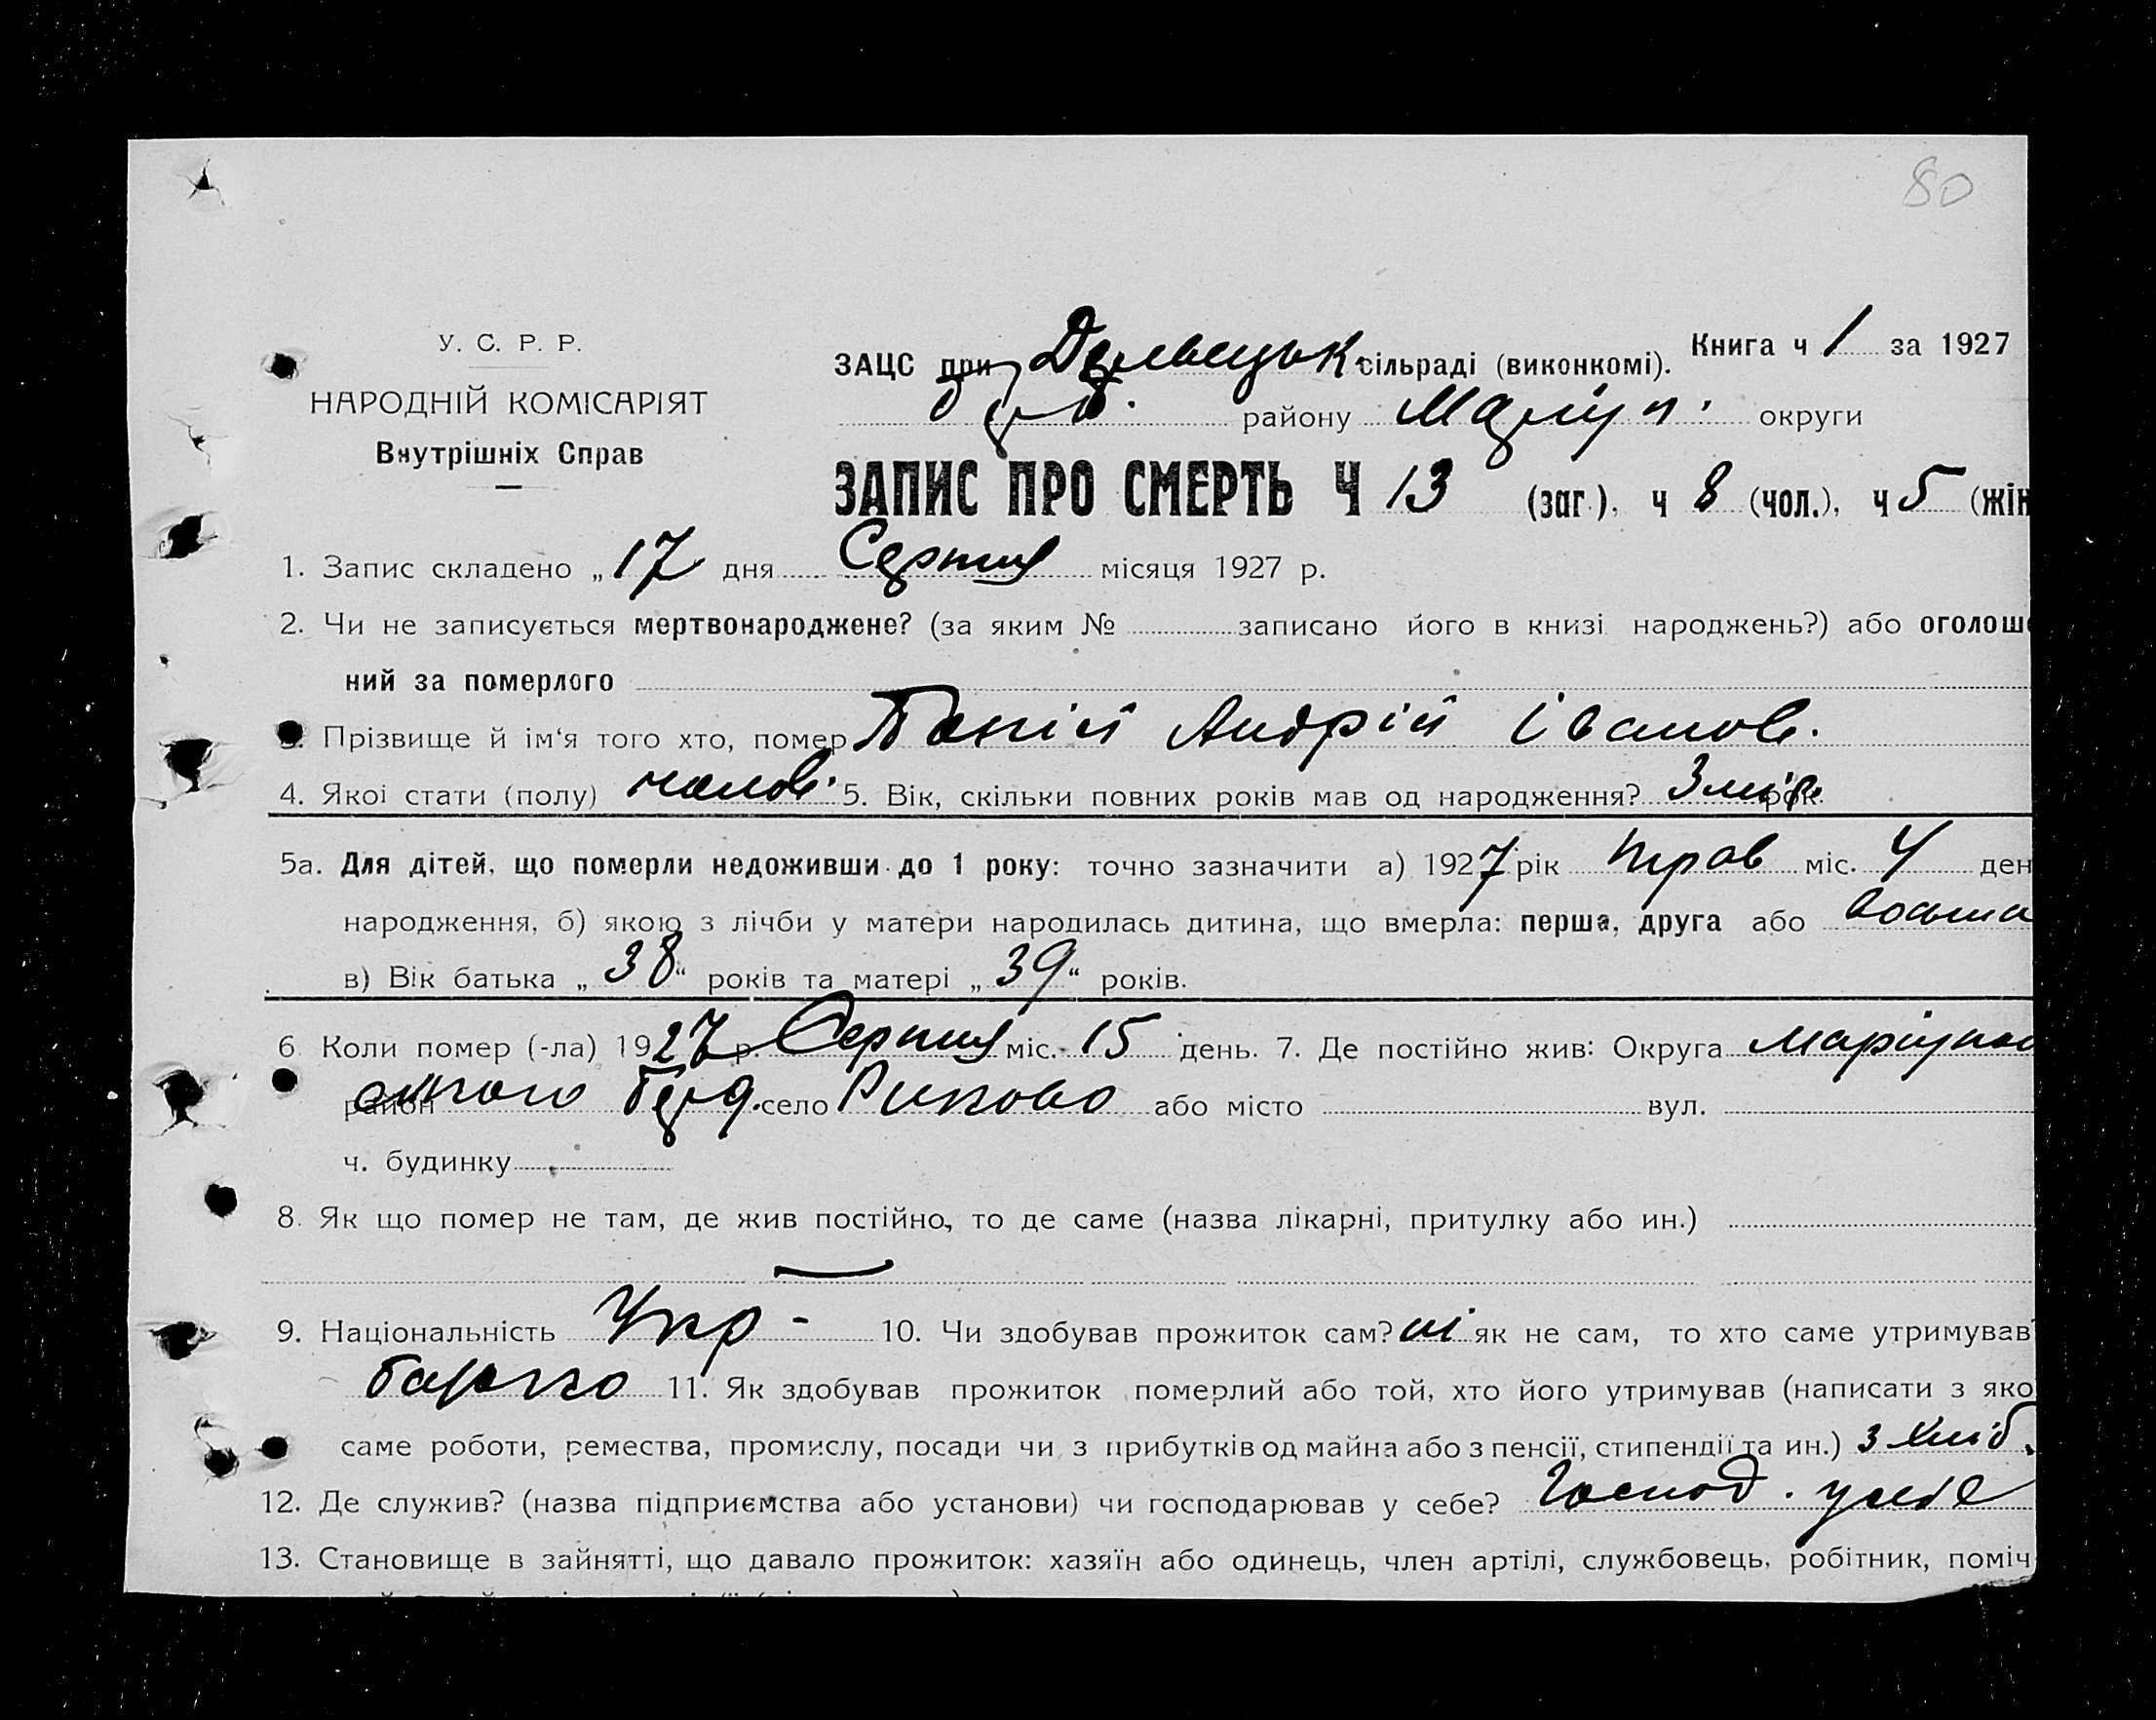 80
У. С. Р. Р.
НАРОДНІЙ КОМІСАРІЯТ
Внутрішніх Справ
ЗАЦС при сільраді (виконкомі). Книга ч 1 за 1927
району Маріуп. округи
ЗАПИС ПРО СМЕРТЬ Ч 13 (заг.), ч 8 (чол.), ч 5 (жін
1. Запис складено „17 дня Серпня місяця 1927 р.
2. Чи не записується мертвонароджене? (за яким № записано його в книзі народжень?) або оголоше
ний за померлого
3. Прізвище й ім'я того хто, помер Андрій Іванов.
4. Якоі стати (полу) чолов. 5. Вік, скільки повних років мав од народження? 3 міс. рок.
5а. Для дітей, що померли недоживши до 1 року: точно зазначити а) 1927 рік трав міс. 4 ден
народження, б) якою з лічби у матери народилась дитина, що вмерла: перша, друга або восьма
в) Вік батька „38“ років та матері „39“ років.
6 Коли помер (-ла) 1927 р. Серпня міс. 15 день. 7. Де постійно жив: Округа Маріупол
район село або місто вул.
ч. будинку
8. Як що помер не там, де жив постійно, то де саме (назва лікарні, притулку або ин.)
—
9. Національність Укр - 10. Чи здобував прожиток сам? ні як не сам, то хто саме утримував
батько 11. Як здобував прожиток померлий або той, хто його утримував (написати з яко
саме роботи, ремества, промислу, посади чи з прибутків од майна або з пенсії, стипендії та ин.) з хліб.
12. Де служив? (назва підприємства або установи) чи господарював у себе? Господ. у себе
13. Становище в зайнятті, що давало прожиток: хазяїн або одинець, член артілі, службовець, робітник, поміч